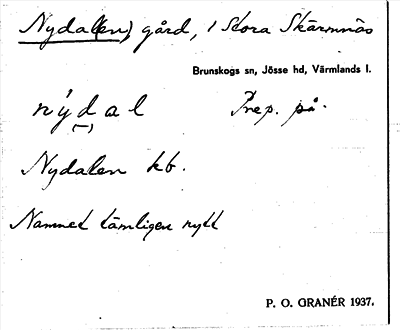 Nydal(en), gård, i Stora Skärmnäs
Brunskogs sn, Jösse hd, Värmlands l.
nýdal Prep. på.
Nydalen kb.
Namnet tämligen nytt
P. O. GRANÉR 1937.